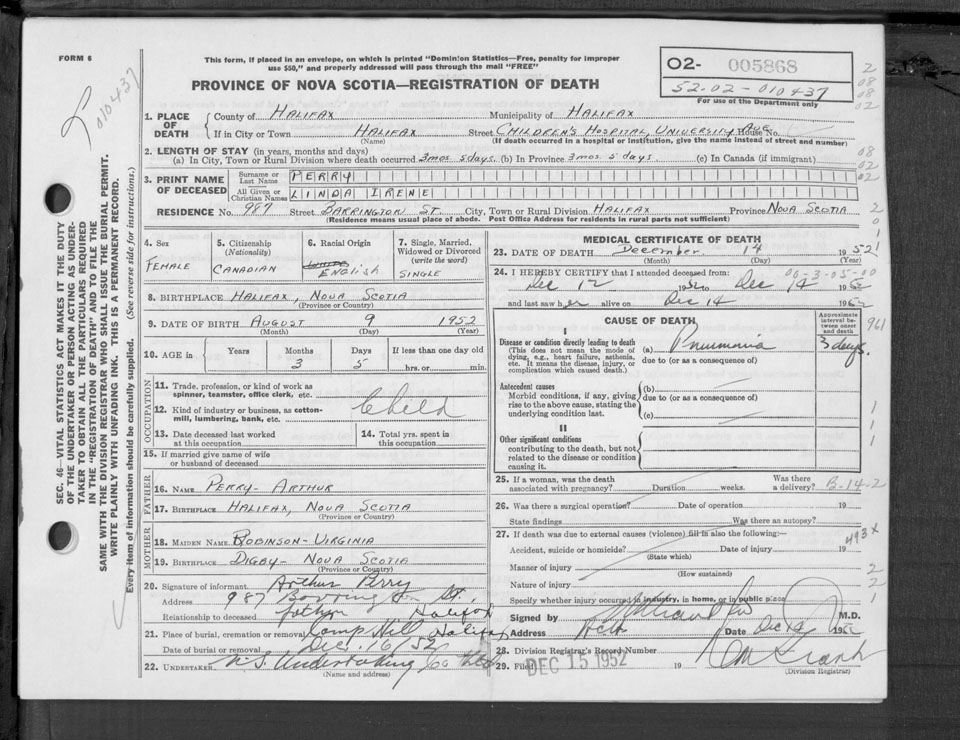 FORM 6
This form, if placed in an envelope, on which is printed "Dominion Statistics—Free, penalty for improper
use $50," and properly addressed will pass through the mail "FREE"
PROVINCE OF NOVA SCOTIA—REGISTRATION OF DEATH
02- 005868
52-02-010437
For use of the Department only
010437
1. PLACE OF DEATH
County of HALIFAX Municipality of HALIFAX
If in City or Town HALIFAX Street CHILDREN'S HOSPITAL, UNIVERSITY AVE House No.
(Name) (If death occurred in a hospital or institution, give the name instead of street and number)
2. LENGTH OF STAY (in years, months and days)
(a) In City, Town or Rural Division where death occurred 3 mos 5 days. (b) In Province 3 mos. 5 days. (c) In Canada (if immigrant)
3. PRINT NAME OF DECEASED
Surname or Last Name PERRY
All Given or Christian Names LINDA IRENE
RESIDENCE No. 987 Street BARRINGTON ST. City, Town or Rural Division HALIFAX Province NOVA SCOTIA
(Residence means usual place of abode. Post Office Address for residents in rural parts not sufficient)
4. Sex
FEMALE
5. Citizenship
(Nationality)
CANADIAN
6. Racial Origin
ENGLISH
7. Single, Married, Widowed or Divorced
(write the word)
SINGLE
8. BIRTHPLACE HALIFAX, NOVA SCOTIA
(Province or Country)
9. DATE OF BIRTH AUGUST 9 1952
(Month) (Day) (Year)
10. AGE in
Years Months Days If less than one day old
3 5 hrs. or min.
OCCUPATION
11. Trade, profession, or kind of work as
spinner, teamster, office clerk, etc.
12. Kind of industry or business, as cotton-
mill, lumbering, bank, etc.
Child
13. Date deceased last worked
at this occupation
14. Total yrs. spent in
this occupation
15. If married give name of wife
or husband of deceased
FATHER
16. NAME PERRY- ARTHUR
17. BIRTHPLACE HALIFAX, NOVA SCOTIA
(Province or Country)
MOTHER
18. MAIDEN NAME ROBINSON- VIRGINIA
19. BIRTHPLACE DIGBY- NOVA SCOTIA
(Province or Country)
20. Signature of informant Arthur Perry
Address 987 Barrington St.
Relationship to deceased father Halifax
21. Place of burial, cremation or removal Camp Hill, Halifax
Date of burial or removal Dec. 16, 52
22. UNDERTAKER N.S. Undertaking Co Ltd
(Name and address)
MEDICAL CERTIFICATE OF DEATH
23. DATE OF DEATH December 14 1952
(Month) (Day) (Year)
24. I HEREBY CERTIFY that I attended deceased from:
Dec 12 1952 to Dec 14 1952
and last saw her alive on Dec 14 1952
CAUSE OF DEATH
Approximate interval between onset and death
I
Disease or condition directly leading to death
(This does not mean the mode of dying, e.g., heart failure, asthma, etc. It means the disease, injury, or complication which caused death.)
(a) Pneumonia 3 days.
due to (or as a consequence of)
Antecedent causes
Morbid conditions, if any, giving rise to the above cause, stating the underlying condition last.
(b)
due to (or as a consequence of)
(c)
II
Other significant conditions
contributing to the death, but not related to the disease or condition causing it.
25. If a woman, was the death
associated with pregnancy? Duration weeks. Was there a delivery? B-14-2
26. Was there a surgical operation? Date of operation 19
State findings Was there an autopsy?
27. If death was due to external causes (violence) fill in also the following:—
Accident, suicide or homicide? Date of injury 19
(State which)
Manner of injury
(How sustained)
Nature of injury
Specify whether injury occurred in industry, in home, or in public place
Signed by M.D.
Address Date Dec 14 1952
28. Division Registrar's Record Number
29. Filed DEC 15 1952 19
(Division Registrar)
961
493x
SEC. 46—VITAL STATISTICS ACT MAKES IT THE DUTY
OF THE UNDERTAKER OR PERSON ACTING AS UNDER-
TAKER TO OBTAIN ALL THE PARTICULARS REQUIRED
IN THE "REGISTRATION OF DEATH" AND TO FILE THE
SAME WITH THE DIVISION REGISTRAR WHO SHALL ISSUE THE BURIAL PERMIT.
WRITE PLAINLY WITH UNFADING INK. THIS IS A PERMANENT RECORD.
Every item of information should be carefully supplied. (See reverse side for instructions.)